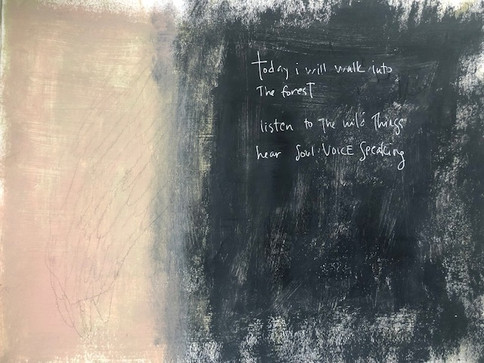 today i will walk into
The foresT
listen to The wild Things
hear Soul VOICE Speaking